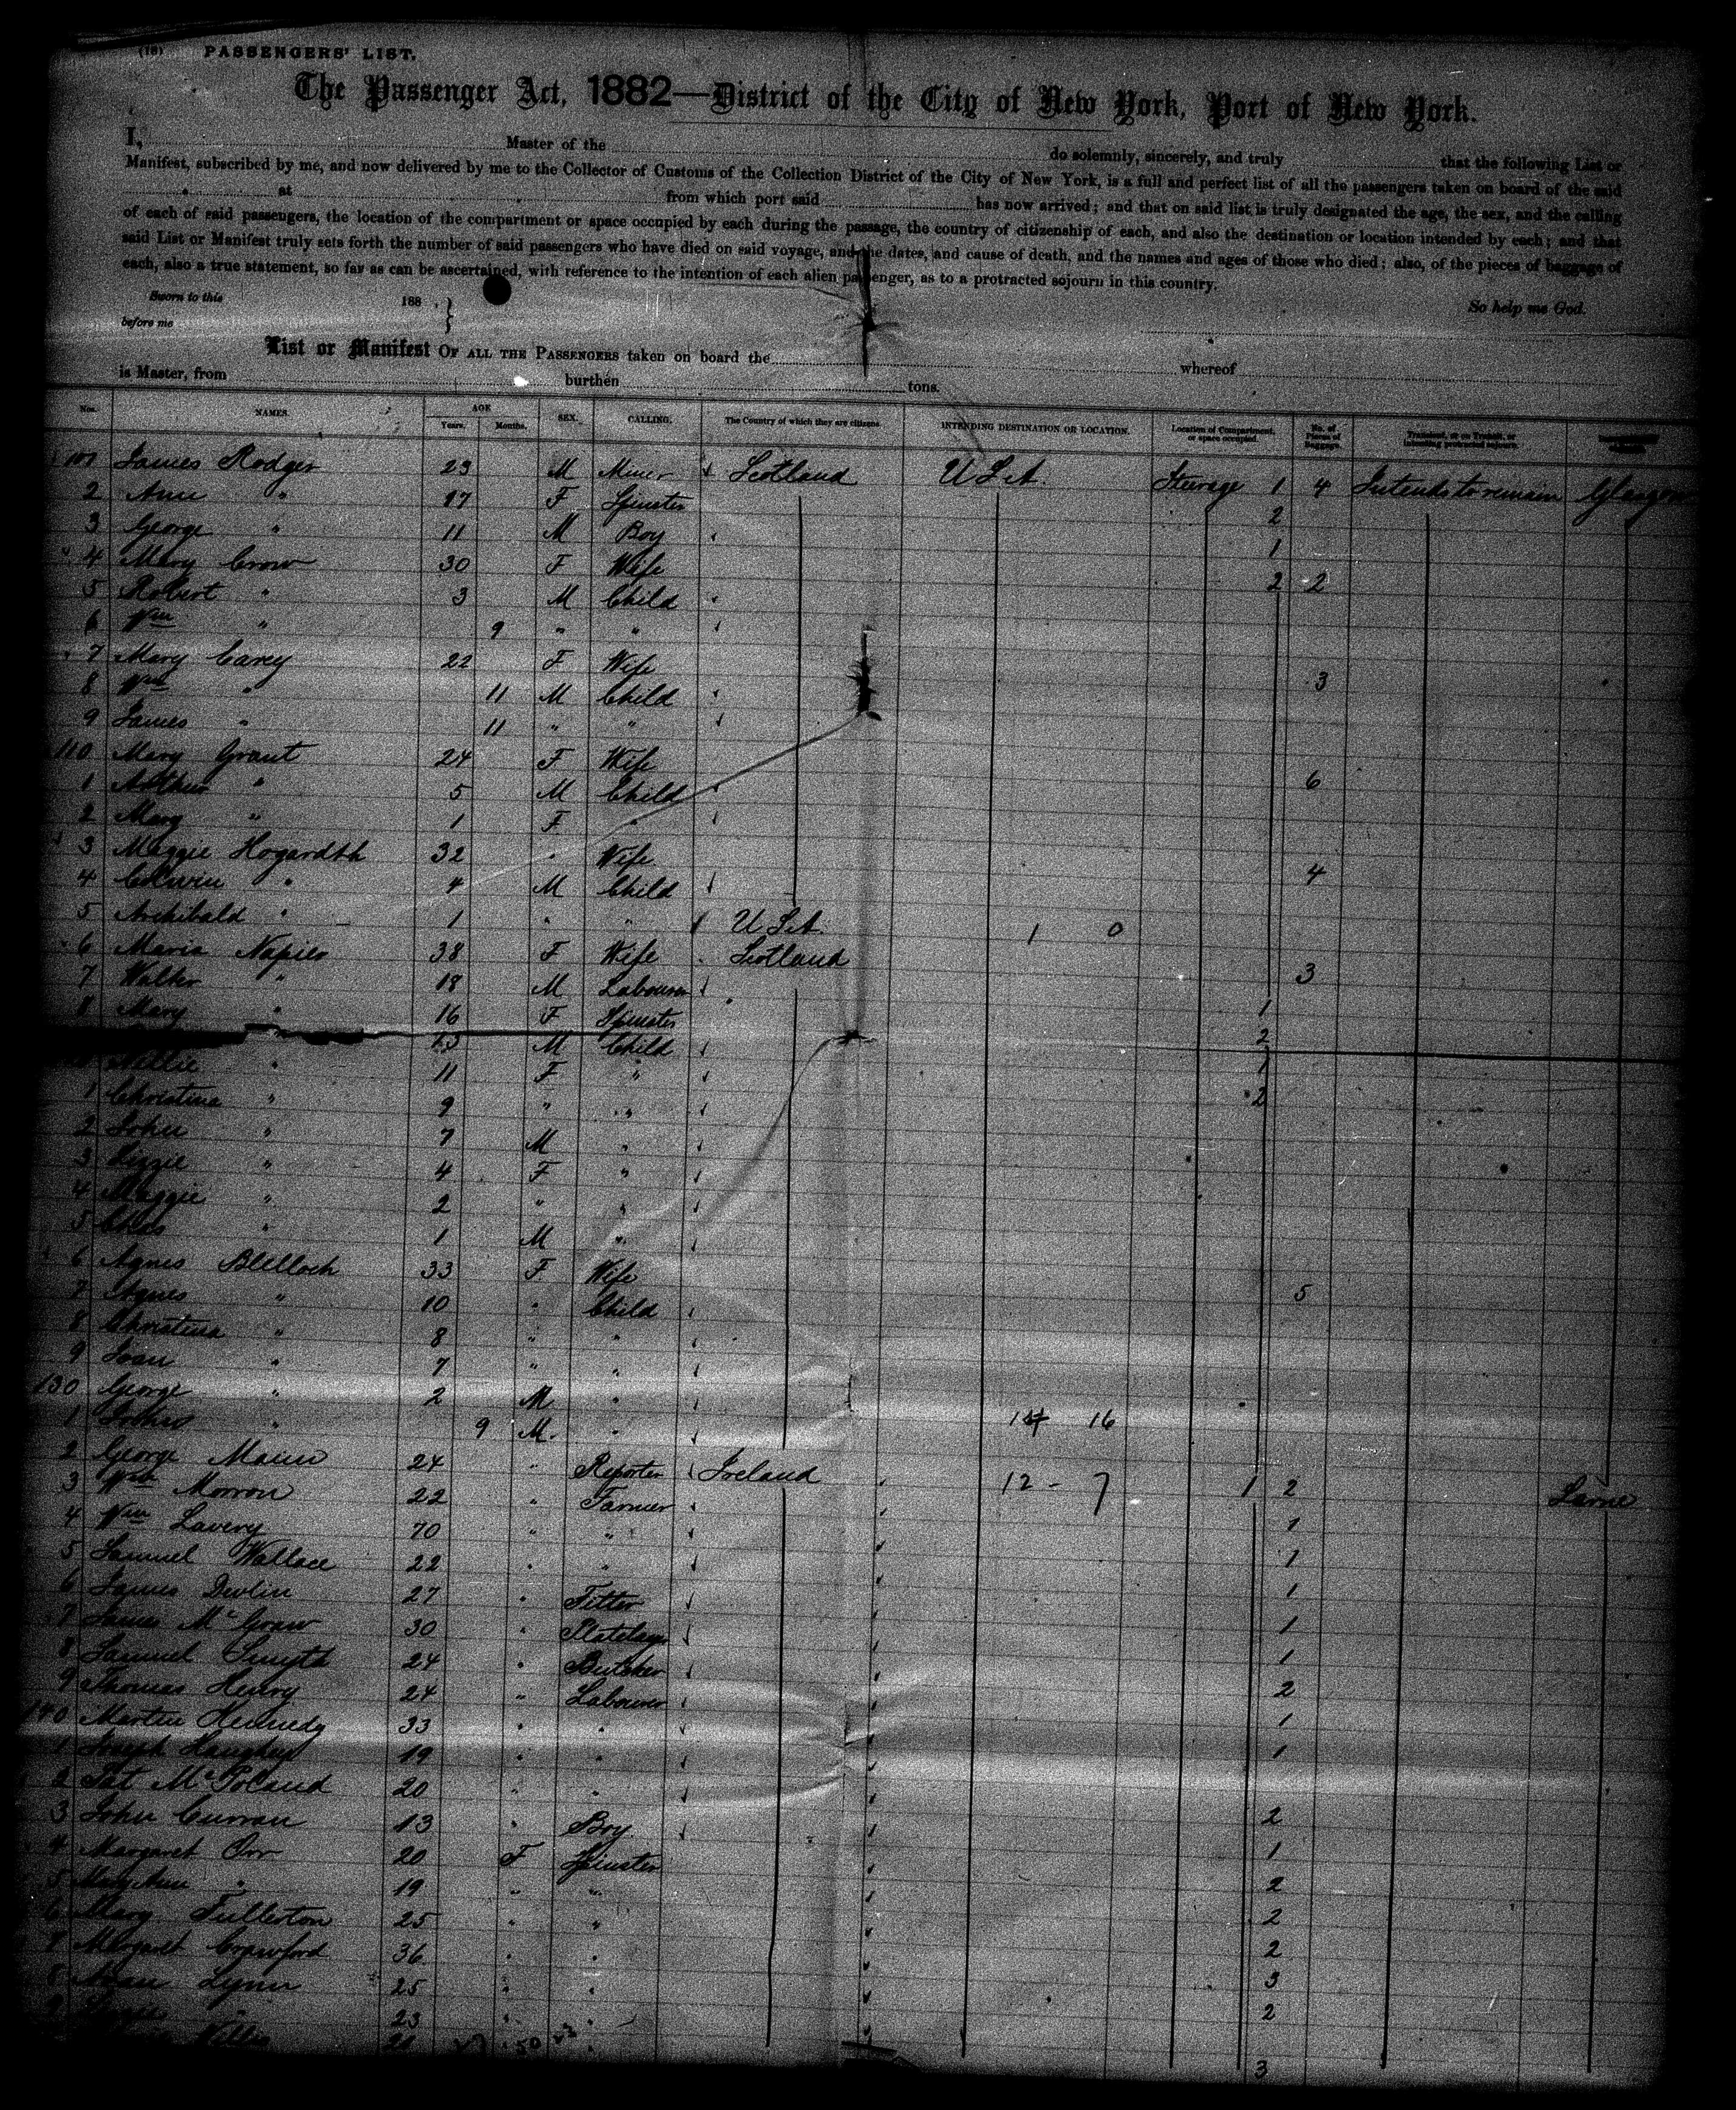 (18) PASSENGERS' LIST.
The Passenger Act, 1882—District of the City of New York, Port of New York.
I, Master of the do solemnly, sincerely, and truly that the following List or
Manifest, subscribed by me, and now delivered by me to the Collector of Customs of the Collection District of the City of New York, is a full and perfect list of all the passengers taken on board of the said
at from which port said has now arrived; and that on said list is truly designated the age, the sex, and the calling
of each of said passengers, the location of the compartment or space occupied by each during the passage, the country of citizenship of each, and also the destination or location intended by each; and that
said List or Manifest truly sets forth the number of said passengers who have died on said voyage, and the dates, and cause of death, and the names and ages of those who died; also, of the pieces of baggage of
each, also a true statement, so far as can be ascertained, with reference to the intention of each alien passenger, as to a protracted sojourn in this country.
Sworn to this 188 . } So help me God.
before me
List or Manifest OF ALL THE PASSENGERS taken on board the whereof
is Master, from burthen tons.
Nos. NAMES. AGE Years. Months. SEX. CALLING. The Country of which they are citizens. INTENDING DESTINATION OR LOCATION. Location of Compartment, or space occupied. No. of Pieces of Baggage.
101 James Rodger 23 M Miner Scotland U S A. Steerage 1 4 Intends to remain Glasgow
2 Ann " 17 F Spinster 2
3 George " 11 M Boy 1
4 Mary Crow 30 F Wife 2 2
5 Robert " 3 M Child
6 Wm " 9 " "
7 Mary Carey 22 F Wife 3
8 Wm " 11 M Child
9 James " 11 " "
110 Mary Grant 24 F Wife 6
1 Arthur " 5 M Child
2 Mary " 1 F "
3 Maggie Hogardth 32 " Wife 4
4 Colwin " 4 M Child
5 Archibald " 1 " " U S A. 1 0
6 Maria Napier 38 F Wife Scotland 3
7 Walter " 18 M Labourer 1
8 Mary " 16 F Spinster 2
13 M Child 1
Nellie " 11 F " 2
1 Christina " 9 " "
2 John " 7 M "
3 Lizzie " 4 F "
4 Maggie " 2 " "
5 " 1 M "
6 Agnes Blelloch 33 F Wife 5
7 Agnes " 10 " Child
8 Christina " 8 " "
9 Joan " 7 " "
130 George " 2 M "
1 " 9 M. " 14 16
2 George Mainn 24 " Reporter Ireland 12 - 7 1 2 Larne
3 Wm Morron 22 " Farmer 1
4 Wm Lavery 70 " " 1
5 Samuel Wallace 22 " " 1
6 James Devlin 27 " Fitter 1
7 James McGraw 30 " Platelayer 1
8 Samuel Smyth 24 " Butcher 2
9 Thomas Henry 24 " Labourer 1
140 Martin Kennedy 33 " " 1
1 Joseph Haughey 19 " "
2 Pat McPoland 20 " " 2
3 John Curran 13 " Boy 1
4 Margaret Orr 20 F Spinster 2
5 Mary Ann " 19 " " 2
6 Mary Fullerton 25 " " 2
7 Margaret Crawford 36 " " 3
8 Lynn 25 " " 2
9 " 23 " "
3